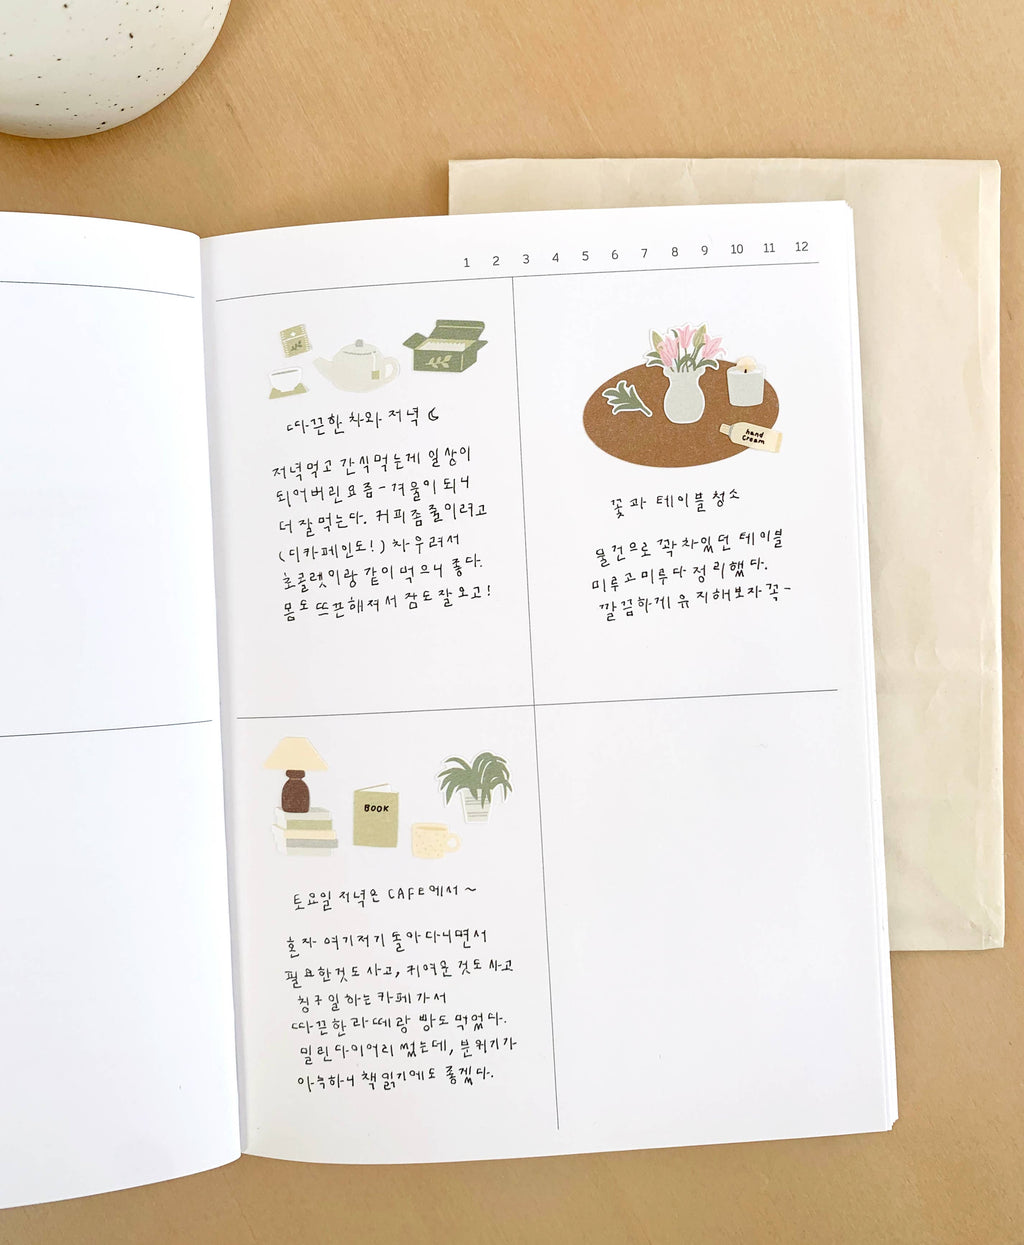 1 2 3 4 5 6 7 8 9 10 11 12
따끈한 차와 저녁
저녁먹고 간식먹는게 일상이
되어버린요즘 - 겨울이 되니
더 잘먹는다. 커피좀줄이려고
(디카페인도!) 차우려서
초콜렛이랑 같이 먹으니 좋다.
몸도 뜨끈해져서 잠도 잘오고!
hand
cream
꽃과 테이블 청소
물건으로 꽉차있던 테이블
미루고미루다 정리했다.
깔끔하게 유지해보자 꼭-
BOOK
토요일 저녁은 CAFE에서~
혼자 여기저기 돌아다니면서
필요한것도 사고, 귀여운 것도 사고
친구일하는 카페가서
따끈한 라떼랑 빵도 먹었다.
밀린다이어리 썼는데, 분위기가
아늑하니 책읽기에도 좋겠다.